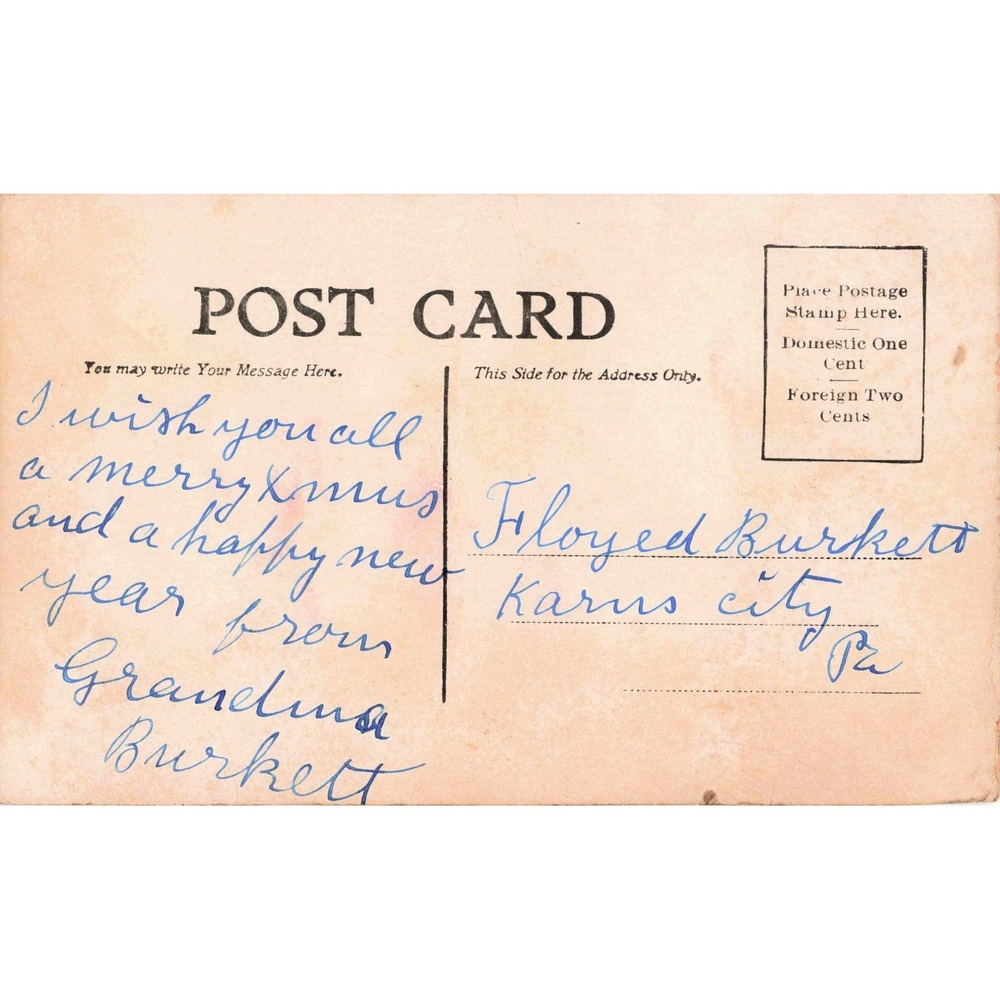 POST CARD
You may write Your Message Here.
This Side for the Address Only.
Place Postage
Stamp Here.
Domestic One
Cent
Foreign Two
Cents
I wish you all
a merry Xmus
and a happy new
year from
Grandma
Burkett
Floyed Burkett
Karns city
Pa